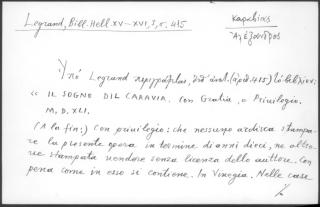 Legrand, Bibl. Hell. XV–XVI, I, σ. 415
Καραβίας
Ἀλέξανδρος
Ὑπό Legrand περιγράφεται, ὑπ' ἀριθ. 415) τό βιβλίον:
« IL SOGNO DIL CARAVIA. Con Gratia, e Privilegio.
M, D, XLI.
(A la fin:) Con privilegio: che nessuno ardisca stampa-
re la presente opera in termine di anni dieci, ne altro-
ve stampata vendere senza licenza dello auttore. Con
pena come in esso si contiene. In Vinegia. Nelle case